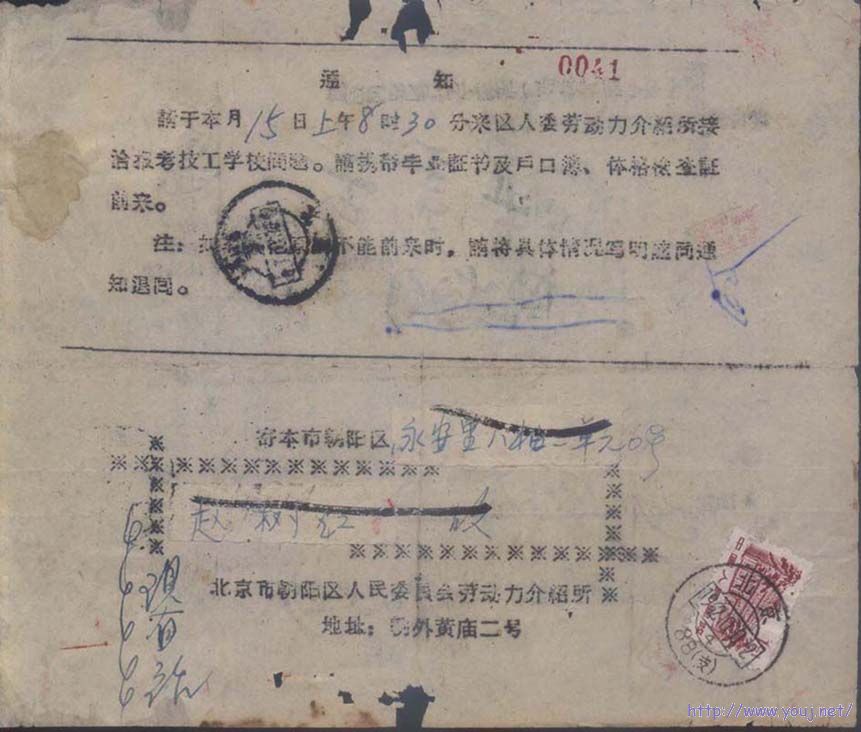 0041
通 知
請于本月15日上午8时30分来区人委劳动力介紹所接
洽报考技工学校问题。請携带毕业証书及戶口簿、体格检查証
前来。
注:如 不能前来时,請将具体情况写明 同通
知退回。
寄本市朝阳区 永安里八 二单元
赵树红 收
北京市朝阳区人民委員会劳动力介紹所
地址:朝外黄庙二号
北京
88(支)
http://www.youj.net/